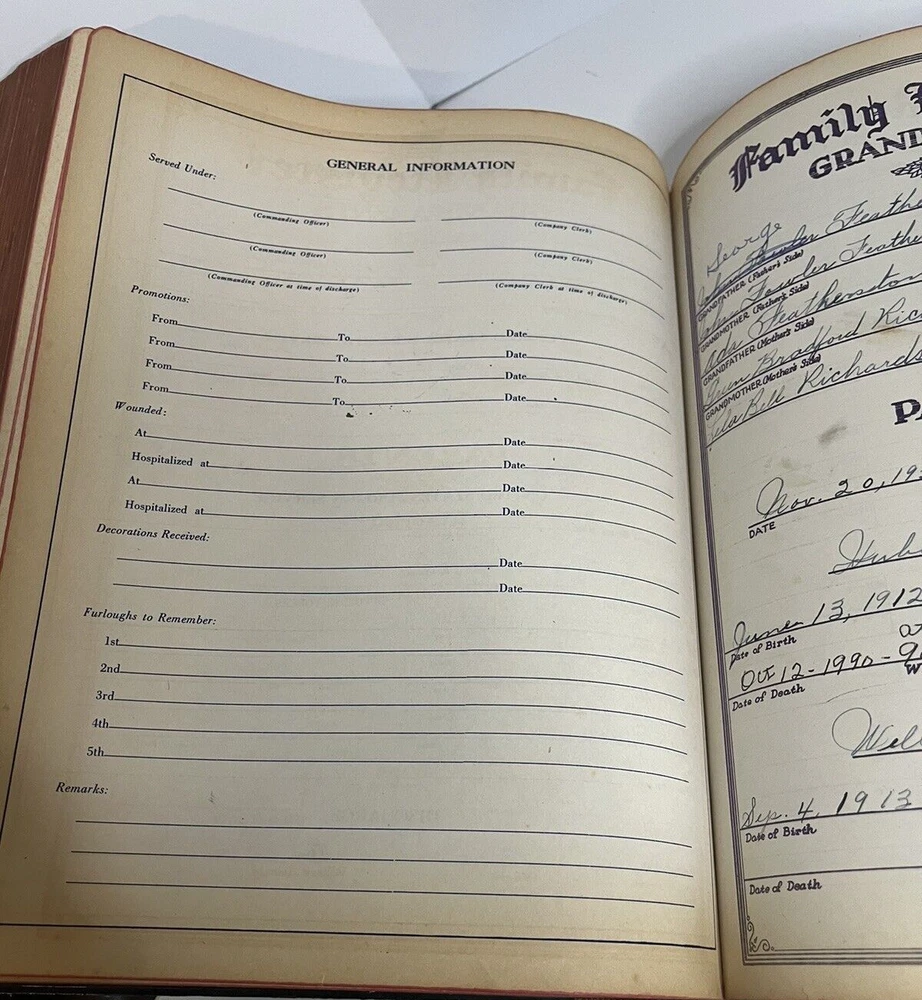 GENERAL INFORMATION
Served Under:
(Commanding Officer) (Company Clerk)
(Commanding Officer) (Company Clerk)
(Commanding Officer at time of discharge) (Company Clerk at time of discharge)
Promotions:
From To Date
From To Date
From To Date
From To Date
Wounded:
At Date
Hospitalized at Date
At Date
Hospitalized at Date
Decorations Received:
Date
Date
Furloughs to Remember:
1st
2nd
3rd
4th
5th
Remarks:
Family
GRAND
George
Fowler Feathe
GRANDFATHER (Father's Side)
Fowler Feather
GRANDMOTHER (Father's Side)
Featherston
GRANDFATHER (Mother's Side)
Bradford Ric
GRANDMOTHER (Mother's Side)
Bell Richards
PA
Nov. 20, 19
DATE
June 13, 1912
Date of Birth
Oct 12-1990-
Date of Death W
Sep. 4, 1913
Date of Birth
Date of Death